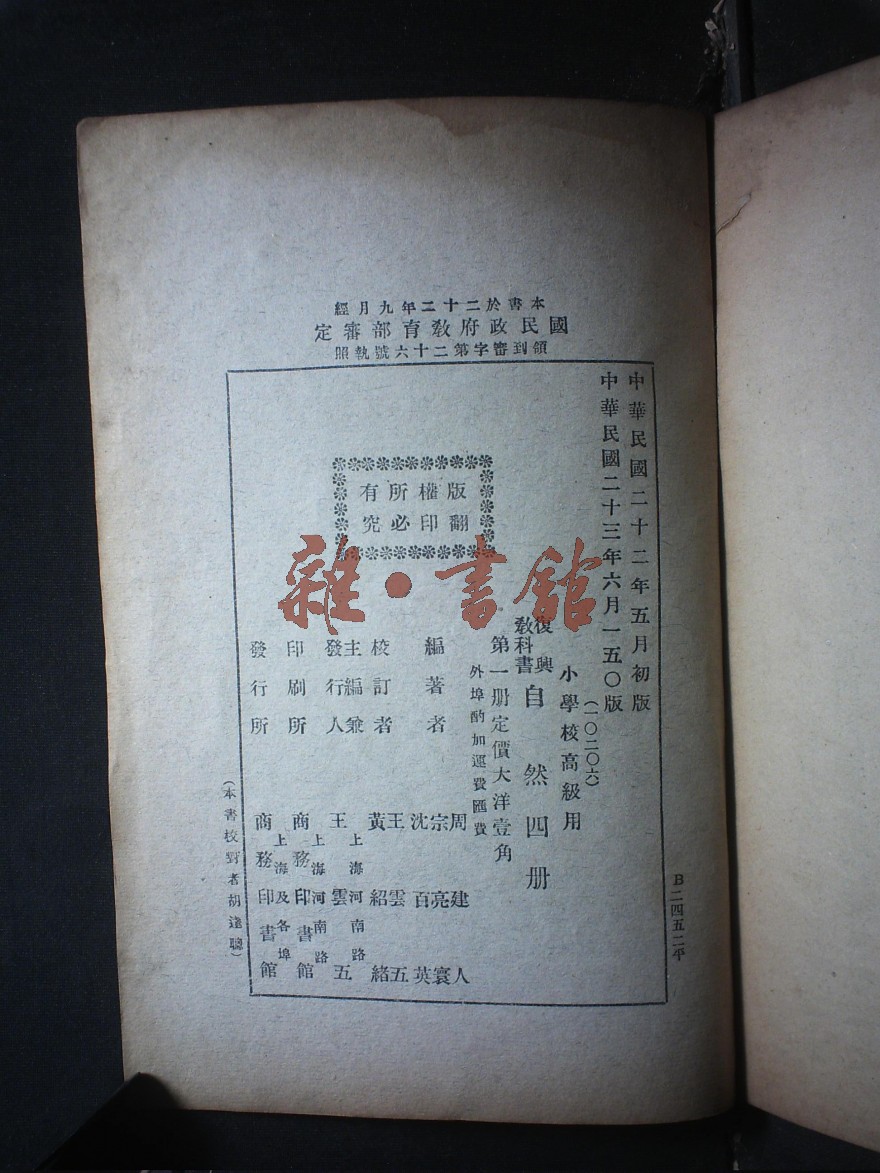 本書於二十二年九月經
國民政府教育部審定
領到審字第二十六號執照
中華民國二十二年五月初版
中華民國二十三年六月一五〇版
(一〇二〇六)
小學校高級用
復興教科書自然四册
第一册定價大洋壹角
外埠酌加運費匯費
版權所有
翻印必究
編著者 周建人 宗亮寰 沈百英
校訂者 王雲五 黃紹緒
主編兼發行人 上海河南路 王雲五
印刷所 上海河南路 商務印書館
發行所 上海及各埠 商務印書館
(本書校對者胡達聰)
B二四五二平
雜·書館